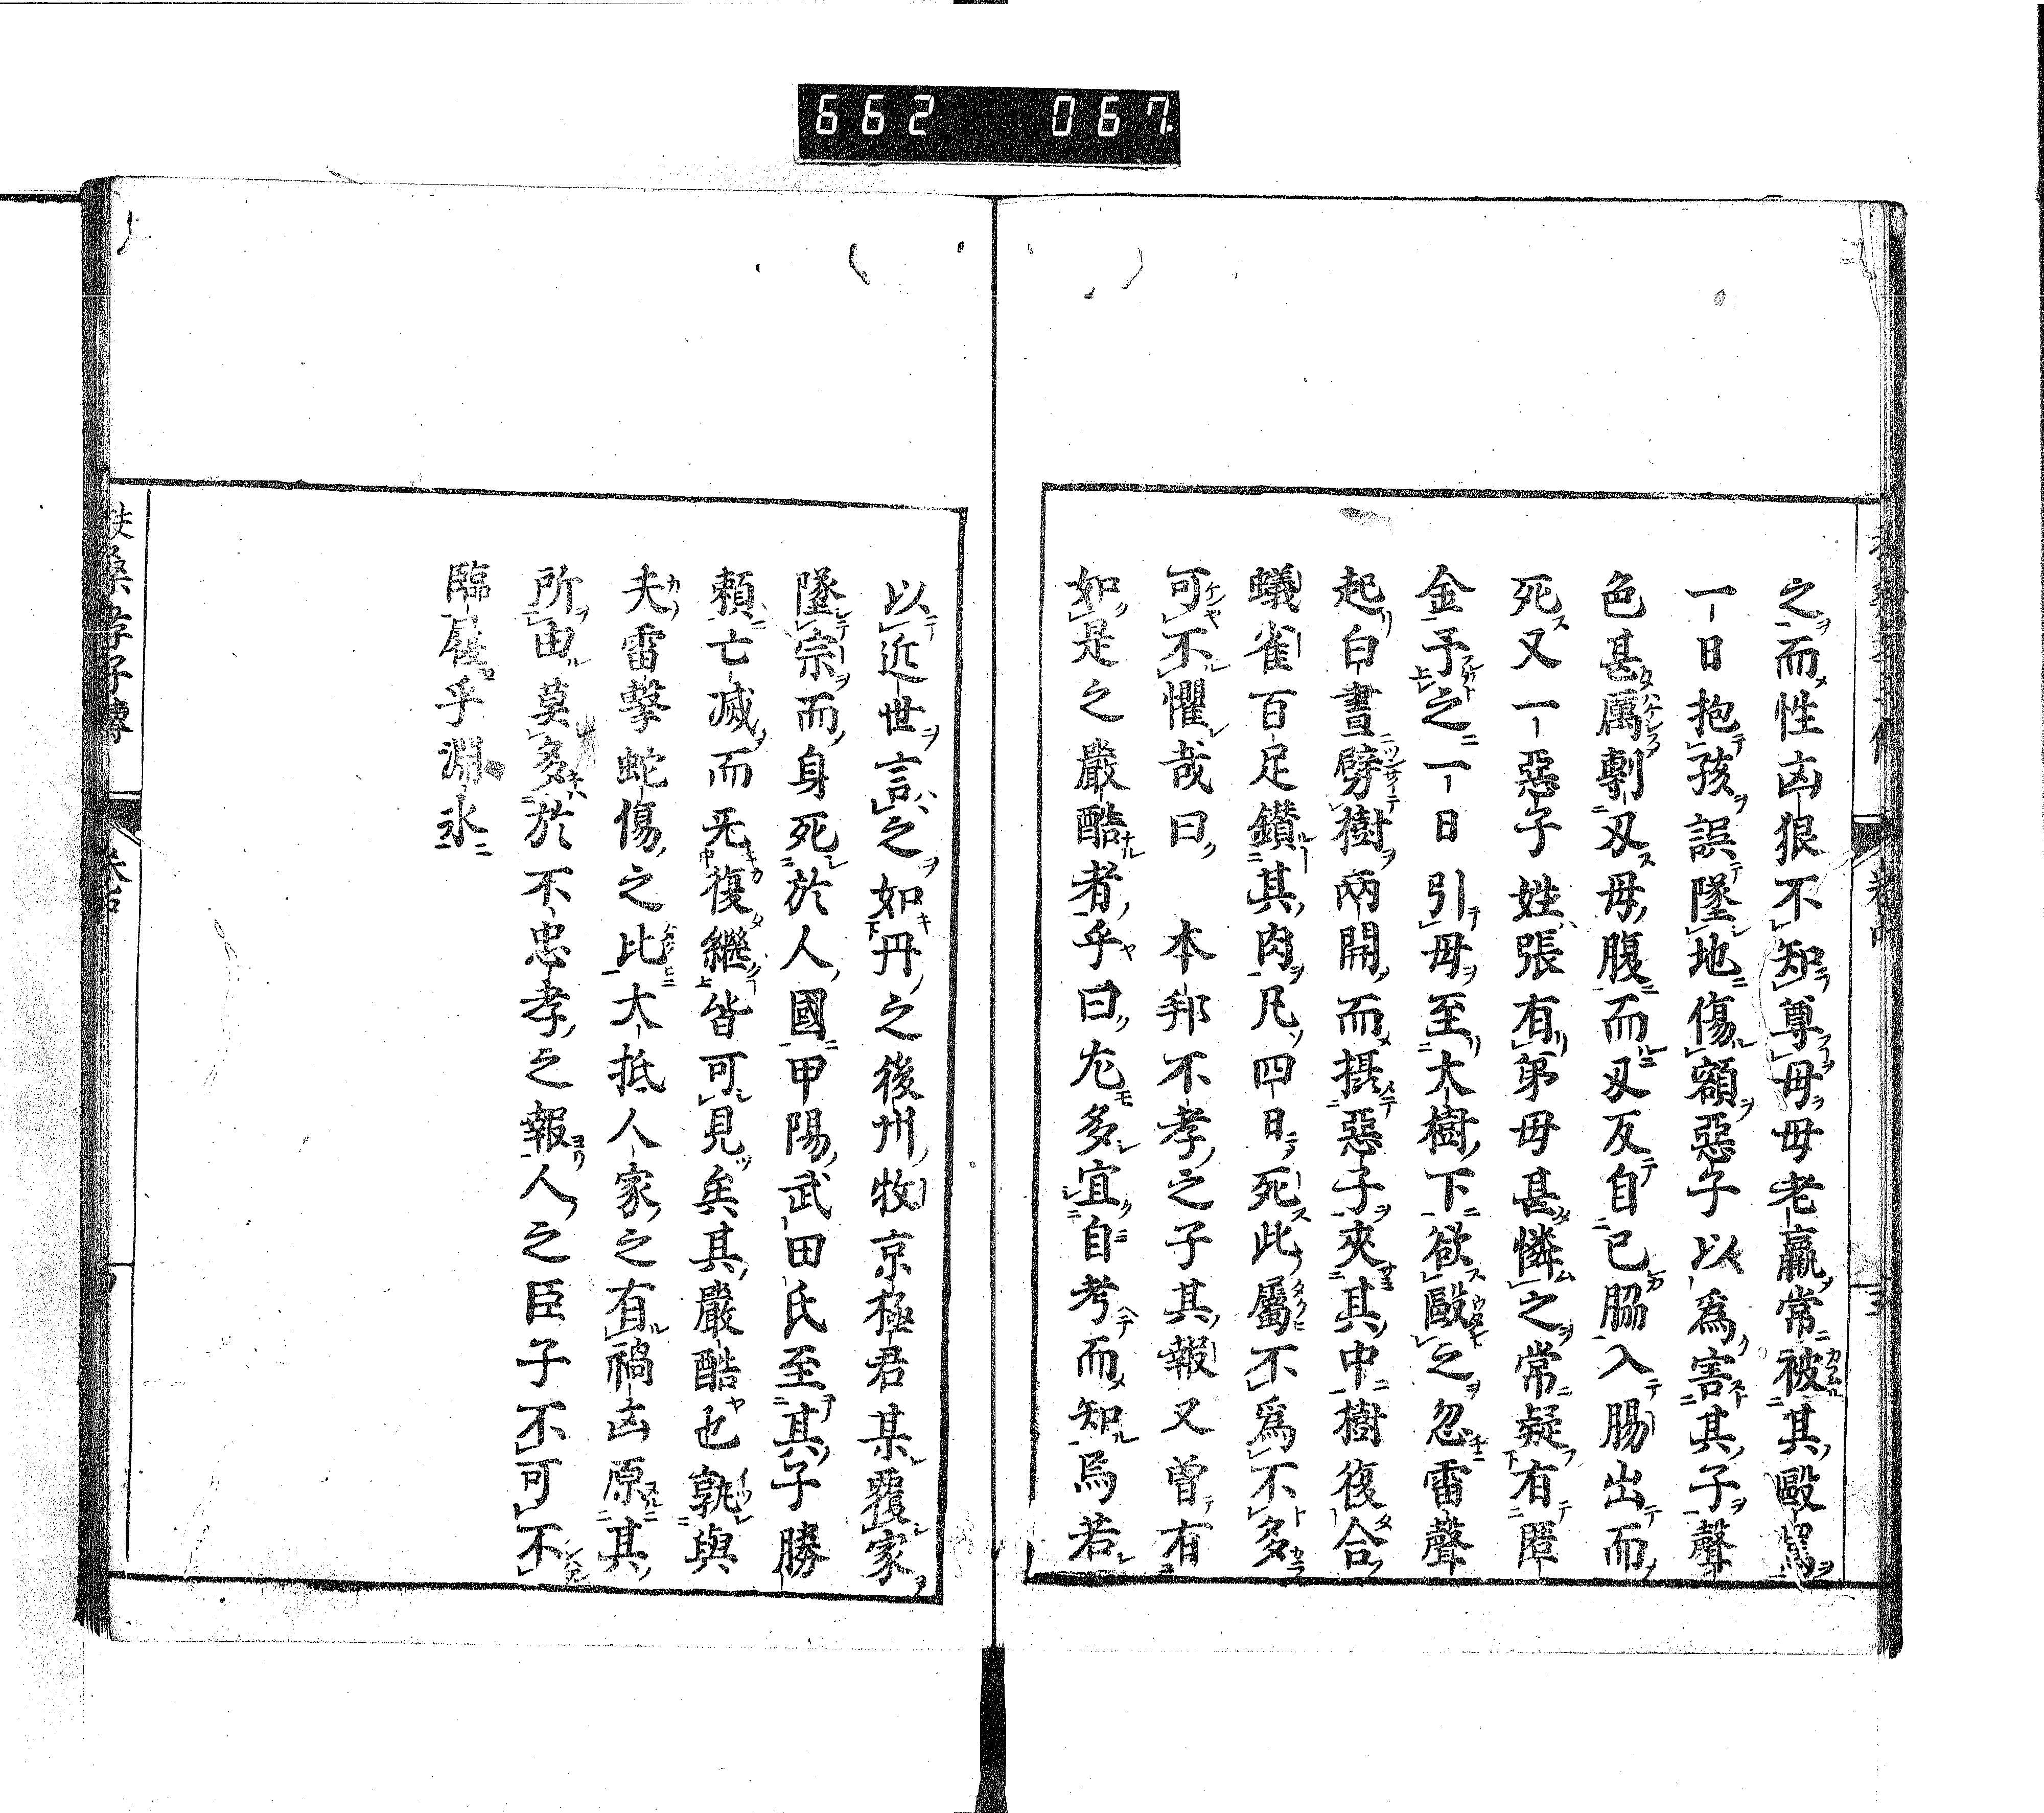 662 067
之而性凶狠不知尊母母老羸常被其毆罵
一日抱孩誤墜地傷額惡子以爲害其子聲
色甚厲剸刃母腹而刃反自己脇入腸出而
死又一惡子姓張有第母甚憐之常疑有匿
金予之一日引母至大樹下欲毆之忽雷聲
起白晝劈樹兩開而攝惡子夾其中樹復合
蟻雀百足鑚其肉凡四日死此屬不爲不多
可不懼哉曰本邦不孝之子其報又曽有
如是之嚴酷者乎曰尤多宜自考而知焉若
以近世言之如丹之後州牧京極君某覆家
墜宗而身死於人國甲陽武田氏至其子勝
頼亡滅而无復繼皆可見矣其嚴酷也孰與
夫雷擊蛇傷之比大抵人家之有禍凶原其
所由莫多於不忠孝之報人之臣子不可不
臨履乎淵氷
扶桑孝子傳